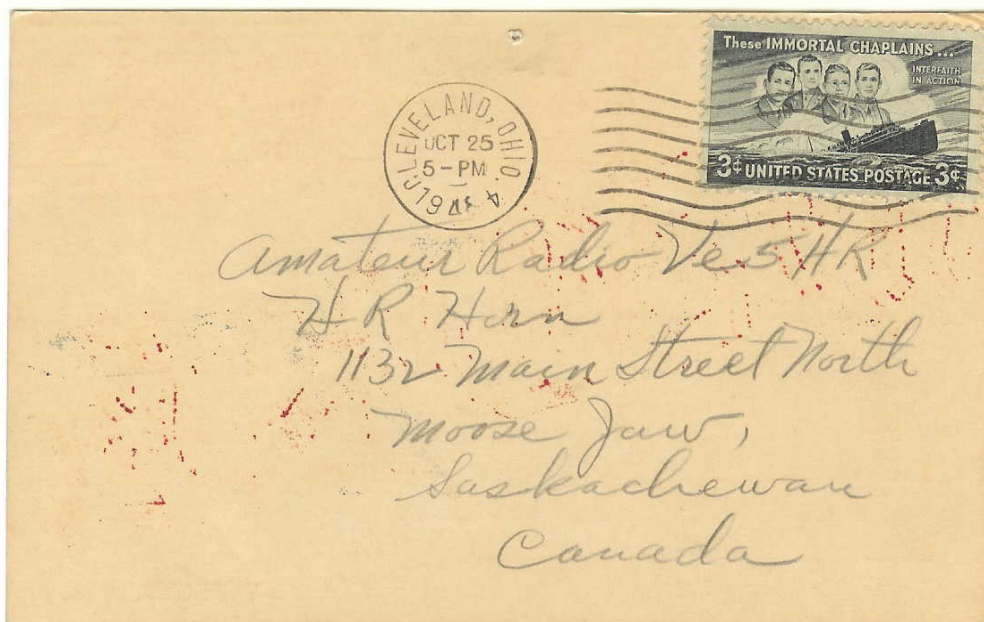 These IMMORTAL CHAPLAINS...
INTERFAITH
IN ACTION
3¢ UNITED STATES POSTAGE 3¢
CLEVELAND, OHIO. 4
OCT 25
5-PM
Amateur Radio Ve5HR
HR Horn
1132 Main Street North
Moose Jaw,
Saskachewan
Canada